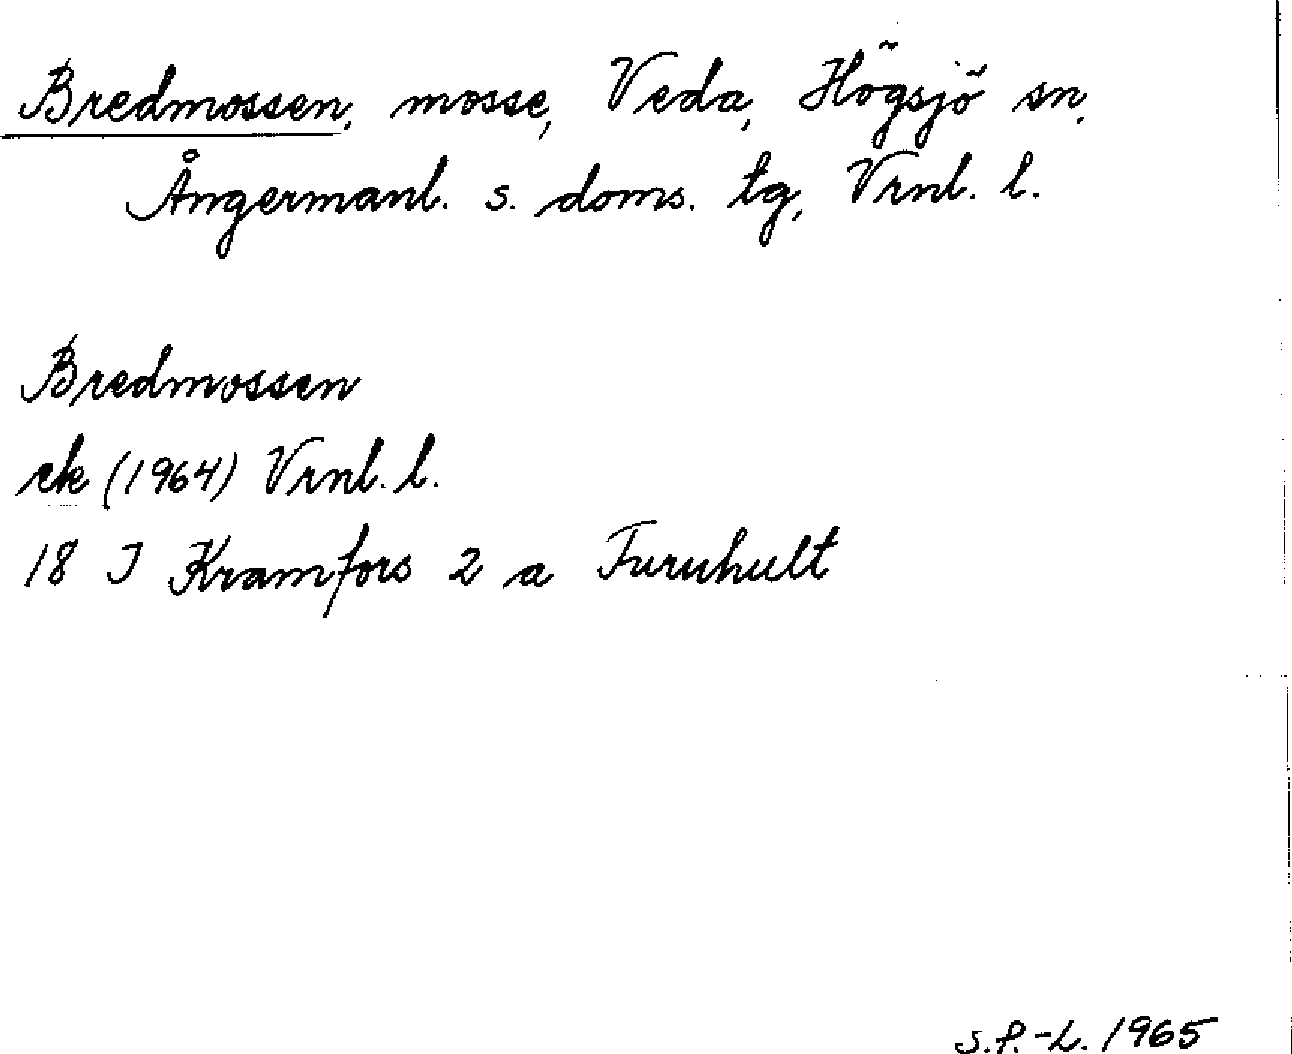 Bredmossen, mosse, Veda, Högsjö sn,
Ångermanl. s. doms. tg, Vrnl. l.
Bredmossen
ek (1964) Vrnl. l.
18 I Kramfors 2 a Furuhult
S.P.-L. 1965